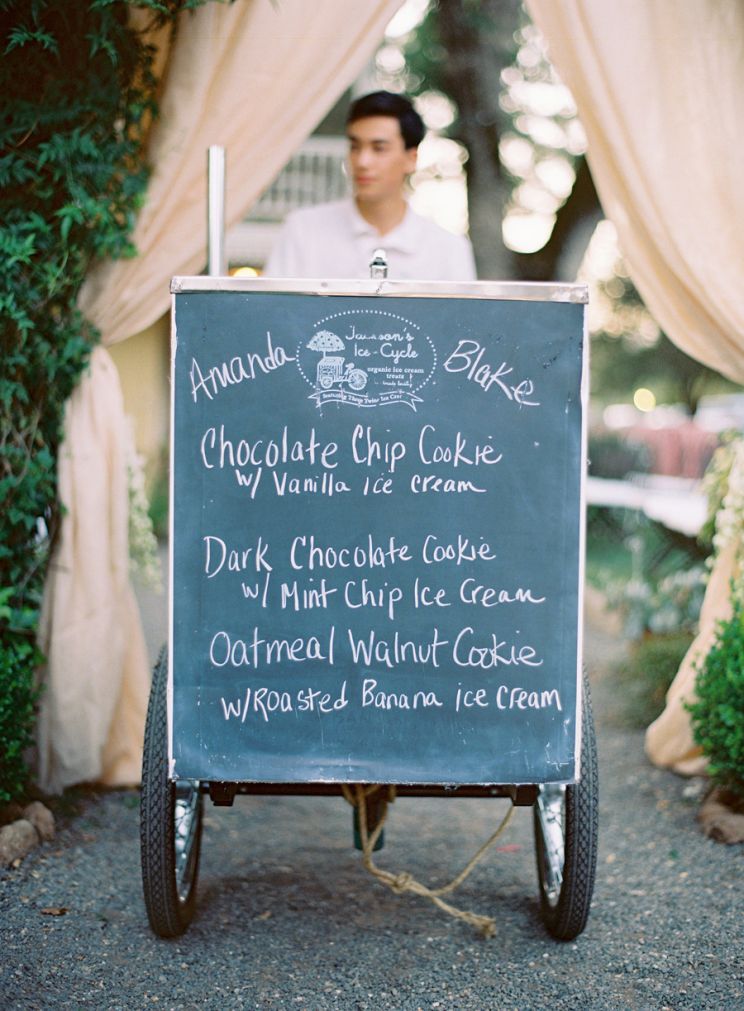 Amanda
Jackson's
Ice-Cycle
organic ice cream
treats
Blake
Chocolate Chip Cookie
w/ Vanilla ice cream
Dark Chocolate Cookie
w/ Mint Chip Ice Cream
Oatmeal Walnut Cookie
w/Roasted Banana ice cream